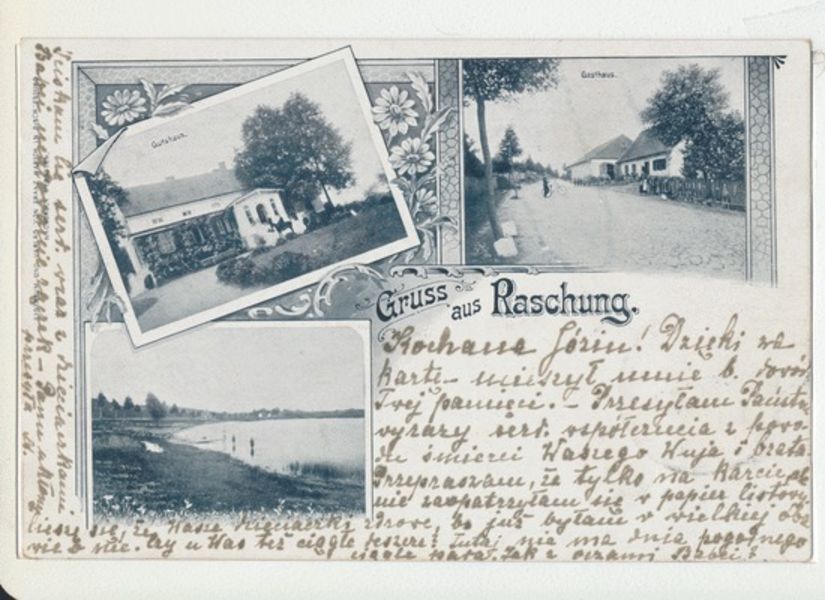 Gutshaus.
Gasthaus.
Gruss aus Raschung.
Kochana Józiu! Dzięki za
kartę – ucieszył mnie b. dowód
Twej pamięci. – Przesyłam Państwu
wyrazy serd. współczucia z powo-
du śmierci Waszego Wuja i brata
Przepraszam, że tylko na karcie
nie zaopatrzyłam się w papier listowy
Cieszę się, że Wasze zdrowe, bo już byłam w wielkiej oba-
wie o nie. Czy u Was też ciągłe deszcze? Tutaj nie ma dnia pogodnego
ciągle pada. Jak z oczami Babci?
Ściskam Cię serd. wraz z
Babci
przesyła